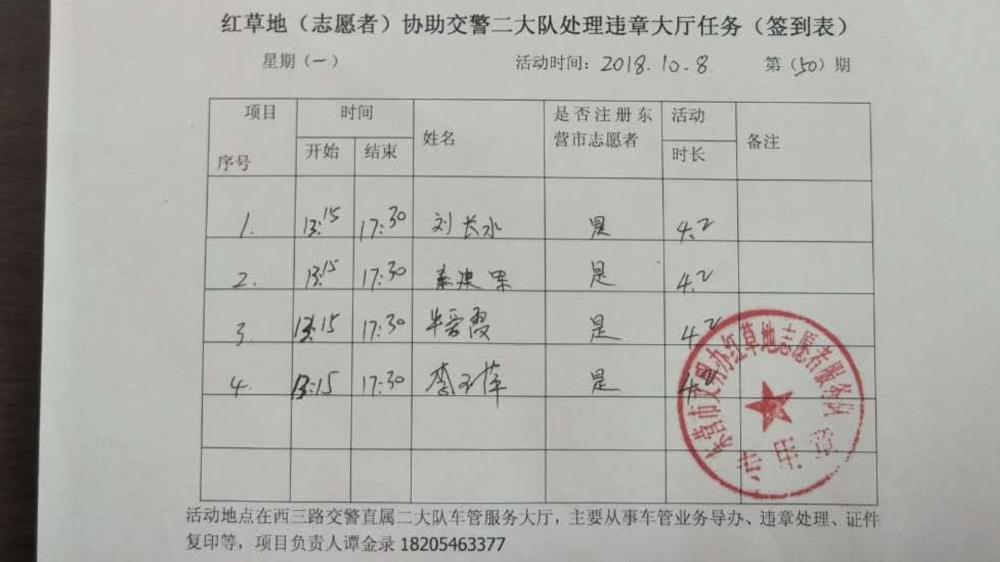 红草地（志愿者）协助交警二大队处理违章大厅任务（签到表）
星期（一） 活动时间：2018.10.8 第（50）期
项目 序号 时间 开始 结束 姓名 是否注册东营市志愿者 活动时长 备注
1. 13:15 17:30 刘长水 是 4.2
2. 13:15 17:30 是 4.2
3. 13:15 17:30 是 4.2
4. 13:15 17:30 李玉萍 是 4.2
东营市文明办红草地志愿者服务队
专用章
活动地点在西三路交警直属二大队车管服务大厅，主要从事车管业务导办、违章处理、证件
复印等，项目负责人谭金录 18205463377